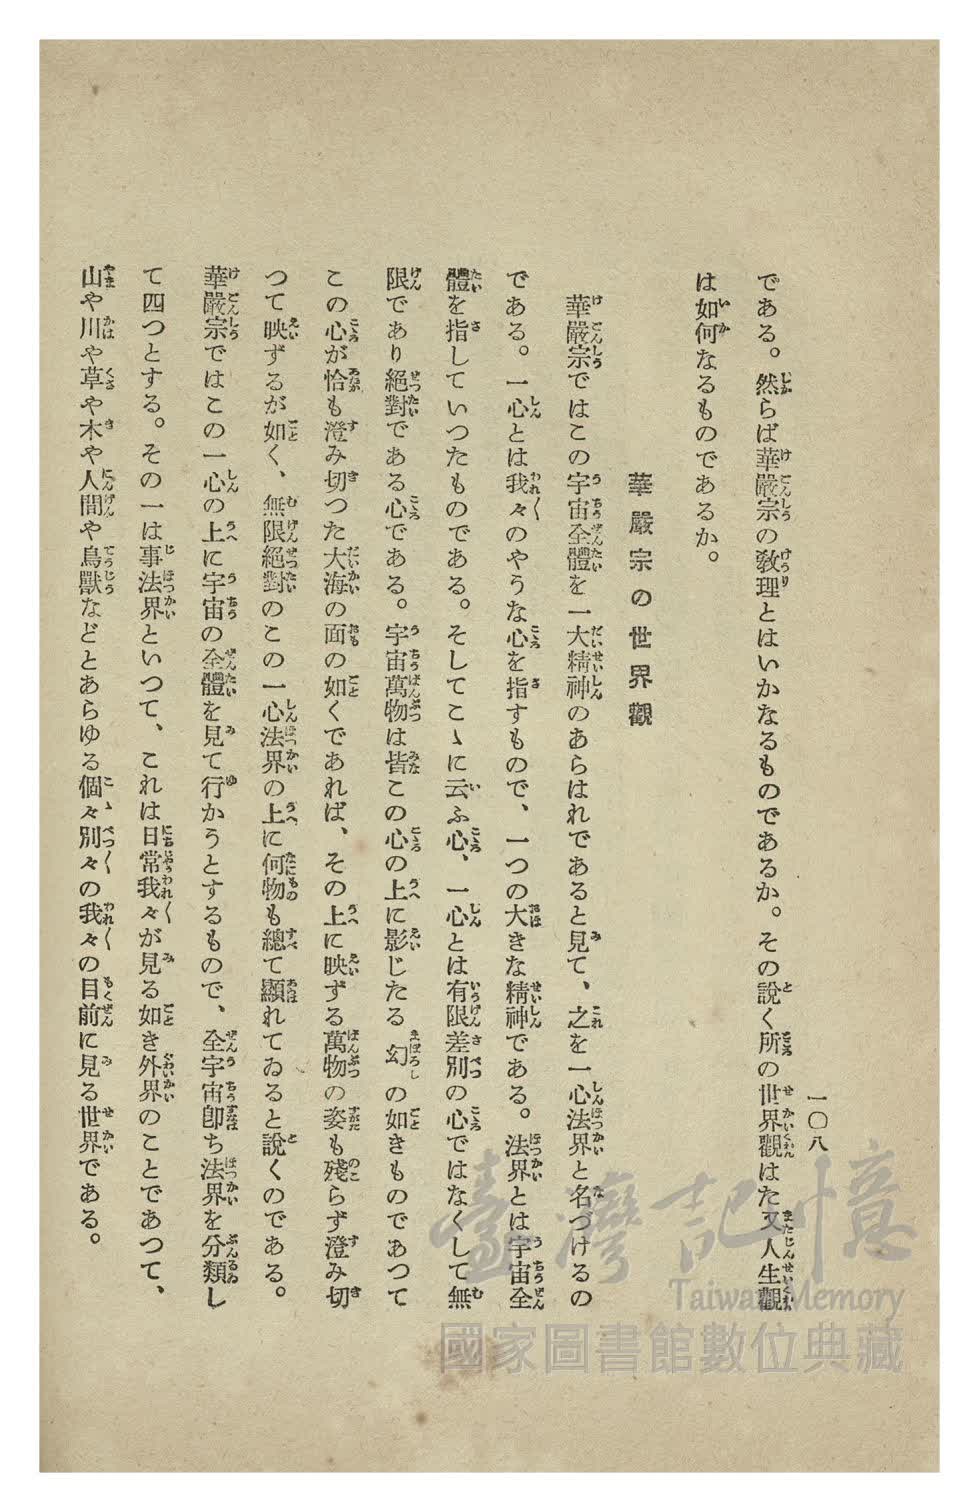 一〇八
である。然らば華嚴宗の敎理とはいかなるものであるか。その說く所の世界觀はた又人生觀
は如何なるものであるか。
華嚴宗の世界觀
華嚴宗ではこの宇宙全體を一大精神のあらはれであると見て、之を一心法界と名づけるの
である。一心とは我々のやうな心を指すもので、一つの大きな精神である。法界とは宇宙全
體を指していつたものである。そしてこゝに云ふ心、一心とは有限差別の心ではなくして無
限であり絕對である心である。宇宙萬物は皆この心の上に影じたる幻の如きものであつて
この心が恰も澄み切つた大海の面の如くであれば、その上に映ずる萬物の姿も殘らず澄み切
つて映ずるが如く、無限絕對のこの一心法界の上に何物も總て顯れてゐると說くのである。
華嚴宗ではこの一心の上に宇宙の全體を見て行かうとするもので、全宇宙卽ち法界を分類し
て四つとする。その一は事法界といつて、これは日常我々が見る如き外界のことであつて、
山や川や草や木や人間や鳥獸などとあらゆる個々別々の我々の目前に見る世界である。
臺灣記憶
Taiwan Memory
國家圖書館數位典藏